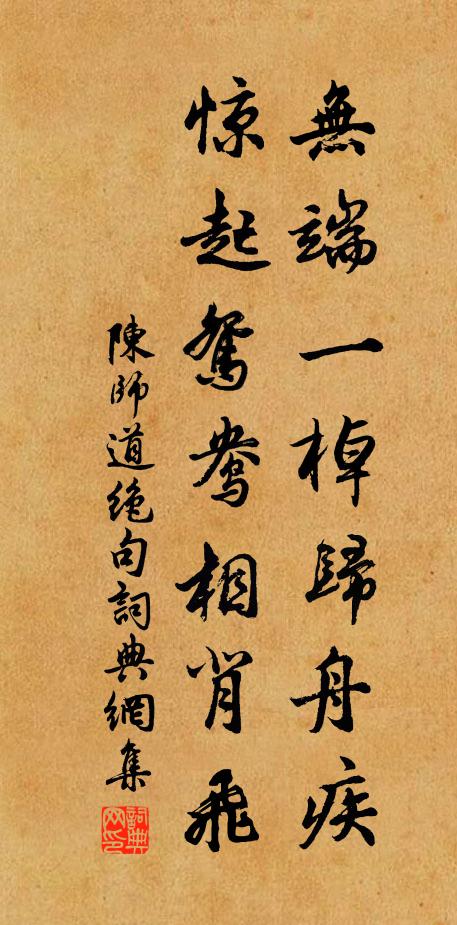 無端一棹歸舟疾
惊起鴛鴦相背飛
陳師道絶句詞典網集
詞典网印